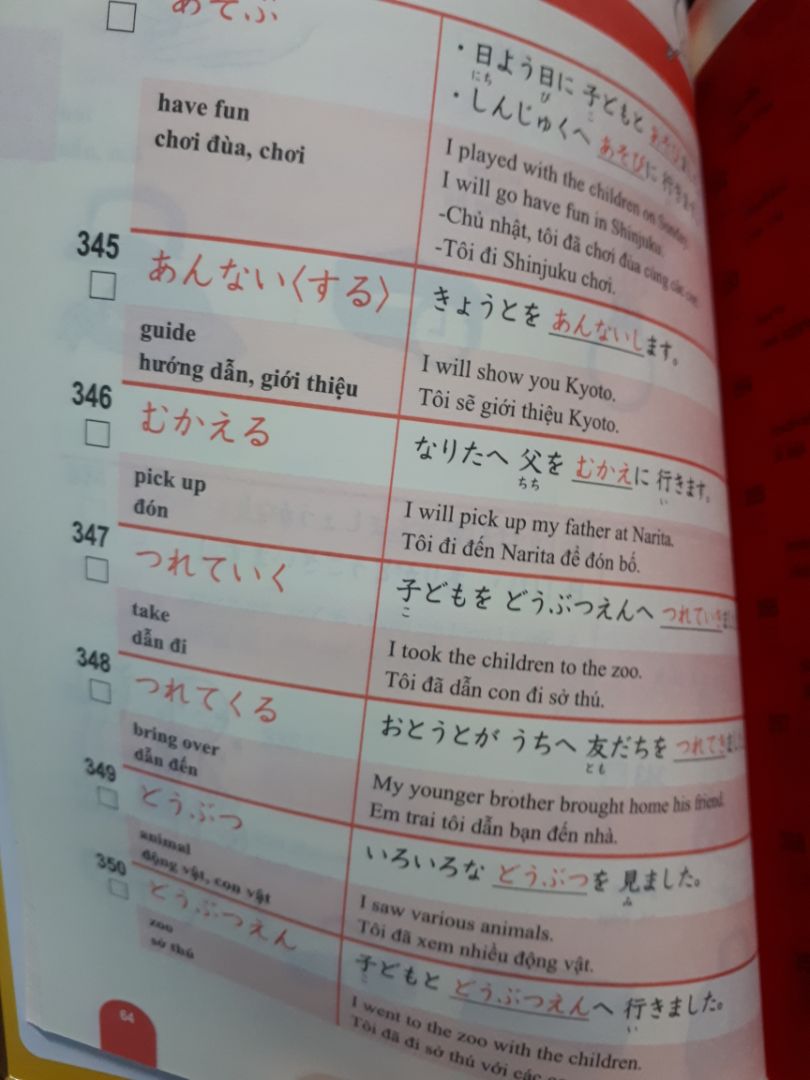 あそぶ
・日よう日に 子どもと あそびました
にち び こ
・しんじゅくへ あそびに 行きます
have fun
chơi đùa, chơi
I played with the children on Sunday.
I will go have fun in Shinjuku.
-Chủ nhật, tôi đã chơi đùa cùng các con.
-Tôi đi Shinjuku chơi.
345
あんない〈する〉
きょうとを あんないします。
guide
hướng dẫn, giới thiệu
I will show you Kyoto.
Tôi sẽ giới thiệu Kyoto.
346
むかえる
なりたへ 父を むかえに 行きます。
ちち い
pick up
đón
I will pick up my father at Narita.
Tôi đi đến Narita để đón bố.
347
つれていく
子どもを どうぶつえんへ つれていきま
こ
take
dẫn đi
I took the children to the zoo.
Tôi đã dẫn con đi sở thú.
348
つれてくる
おとうとが うちへ 友だちを つれてきました
とも
bring over
dẫn đến
My younger brother brought home his friend.
Em trai tôi dẫn bạn đến nhà.
349
どうぶつ
いろいろな どうぶつを 見ました。
み
animal
động vật, con vật
I saw various animals.
Tôi đã xem nhiều động vật.
350
どうぶつえん
子どもと どうぶつえんへ 行きました。
こ い
zoo
sở thú
I went to the zoo with the children.
Tôi đã đi sở thú với các
64